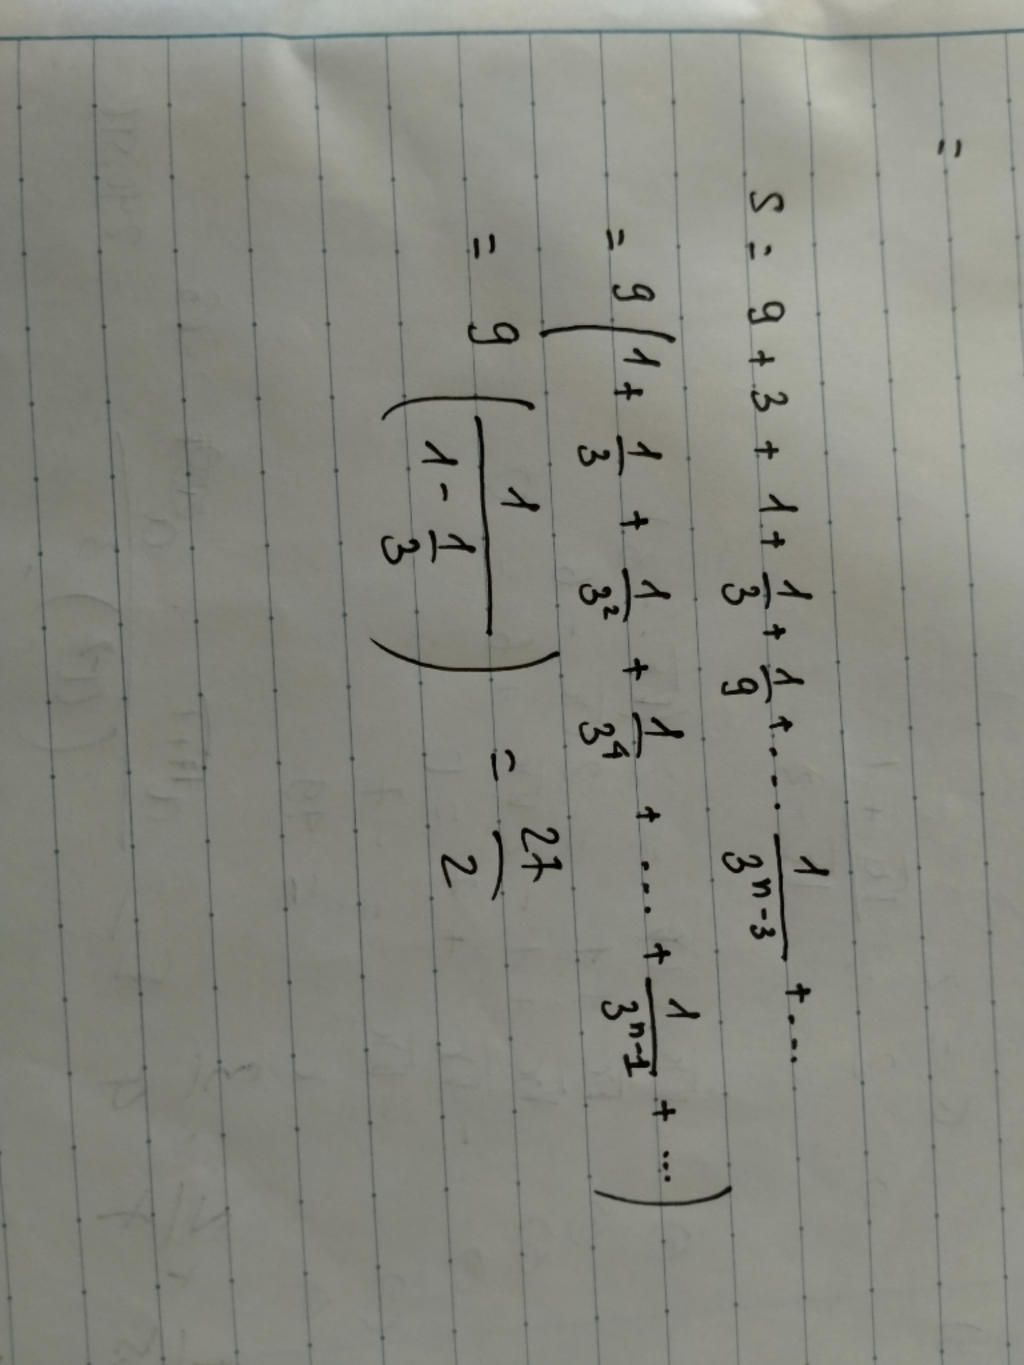 =
S = 9 + 3 + 1 + 1/3 + 1/9 + ... 1/3^(n-3) + ...
= 9 (1 + 1/3 + 1/3² + 1/3⁴ + ... + 1/3^(n-1) + ...)
= 9 (1/(1 - 1/3)) = 27/2